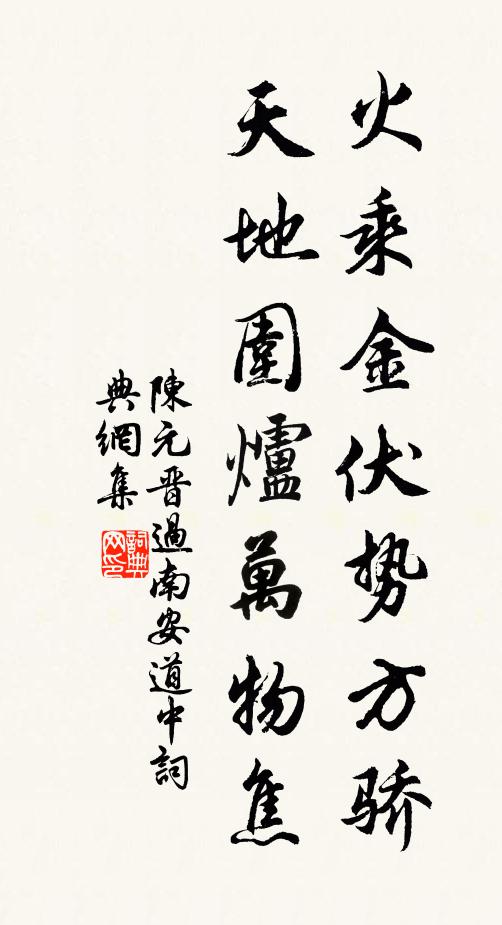 火乘金伏势方骄
天地圍爐萬物焦
陳元晋過南安道中詞
典網集
詞典
网印